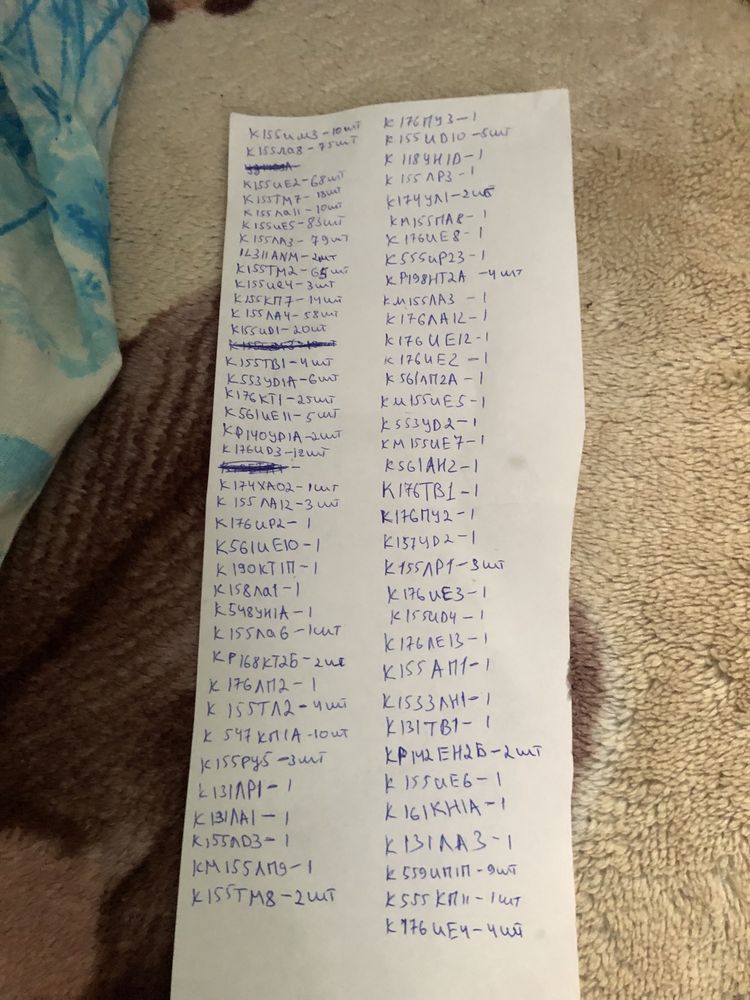 К155ИМ3-10шт
К155ла8-75шт
К155ИЕ2-68шт
К155ТМ7-13шт
К155ла11-10шт
К155ИЕ5-83шт
К155ЛА3-79шт
IL311ANM-2шт
К155ТМ2-65шт
К155ИЕ4-3шт
К155КП7-14шт
К155ЛА4-58шт
К155ИД1-20шт
К155ТВ1-4шт
К553УД1А-6шт
К176КТ1-25шт
К561ИЕ11-5шт
КР140УД1А-2шт
К176ИД3-12шт
К174ХА02-1шт
К155ЛА12-3шт
К176ИР2-1
К561ИЕ10-1
К190КТ1П-1
К158ла1-1
К548УН1А-1
К155ла6-1шт
КР168КТ2Б-2шт
К176ЛП2-1
К155ТЛ2-4шт
К547КП1А-10шт
К155РУ5-3шт
К131ЛР1-1
К131ЛА1-1
К155ЛД3-1
КМ155ЛП9-1
К155ТМ8-2шт
К176ПУ3-1
К155ИД10-5шт
К118УН1D-1
К155ЛР3-1
К174УЛ1-2шт
КМ155ПА8-1
К176ИЕ8-1
К555ИР23-1
КР198НТ2А-4шт
КМ155ЛА3-1
К176ЛА12-1
К176ИЕ12-1
К176ИЕ2-1
К561ЛП2А-1
КМ155ИЕ5-1
К553УД2-1
КМ155ИЕ7-1
К561ЛН2-1
К176ТВ1-1
К176ПУ2-1
К157УД2-1
К155ЛР1-3шт
К176ИЕ3-1
К155ИД4-1
К176ЛЕ13-1
К155АП1-1
К1533ЛН1-1
К131ТВ1-1
КР142ЕН2Б-2шт
К155ИЕ6-1
К161КН1А-1
К131ЛА3-1
К559ИП1П-9шт
К555КП11-1шт
К176ИЕ4-4шт